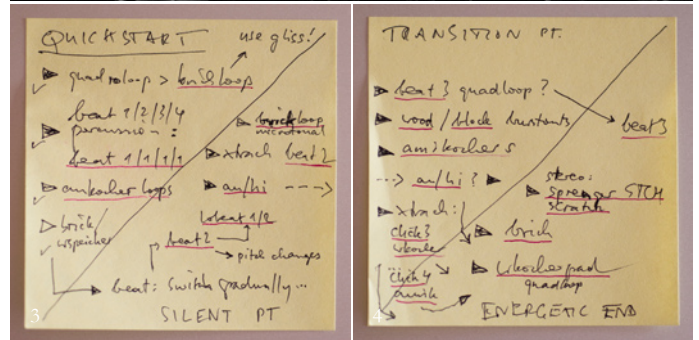 QUICKSTART
use gliss!
quadroloop > brickloop
beat 1/2/3/4
percussion:
beat 1/1/1/1
brickloop
microtonal
xtrach beat 2
amkocher loops
am/hi --->
brick/
wspeicher
wbeat 1/2
beat 2
pitch changes
beat: switch gradually...
3
SILENT PT
TRANSITION PT.
beat 3 quadloop?
beat 3
wood / block
amikochers
---> am/hi?
stereo:
STCH
scratch
xtrach:
click 3
wkocher
brick
click 4
wkocherpad
quadloop
4
ENERGETIC END